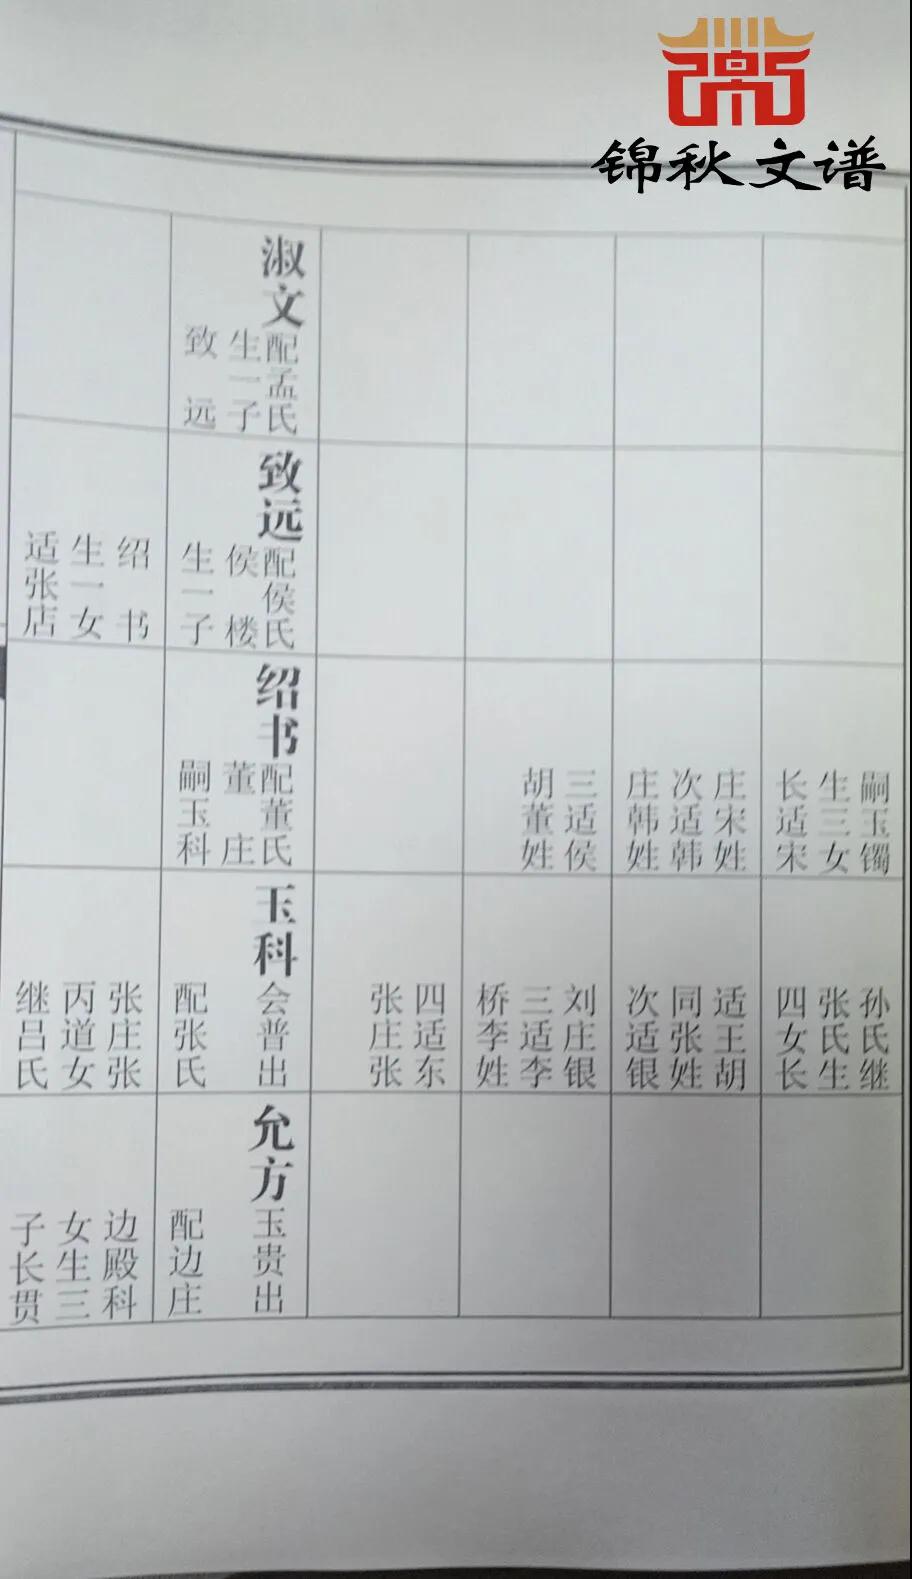 锦秋文谱
淑文
配孟氏
生一子
致远
致远
配侯氏
侯楼
生一子
绍书
生一女
适张店
嗣玉镯
生三女
长适宋
庄宋姓
次适韩
庄韩姓
三适侯
胡董姓
绍书
配董氏
董庄
嗣玉科
孙氏继
张氏生
四女长
适王胡
同张姓
次适银
刘庄银
三适李
桥李姓
四适东
张庄张
玉科
会普出
配张氏
张庄张
丙道女
继吕氏
允方
玉贵出
配边庄
边殿科
女生三
子长贯